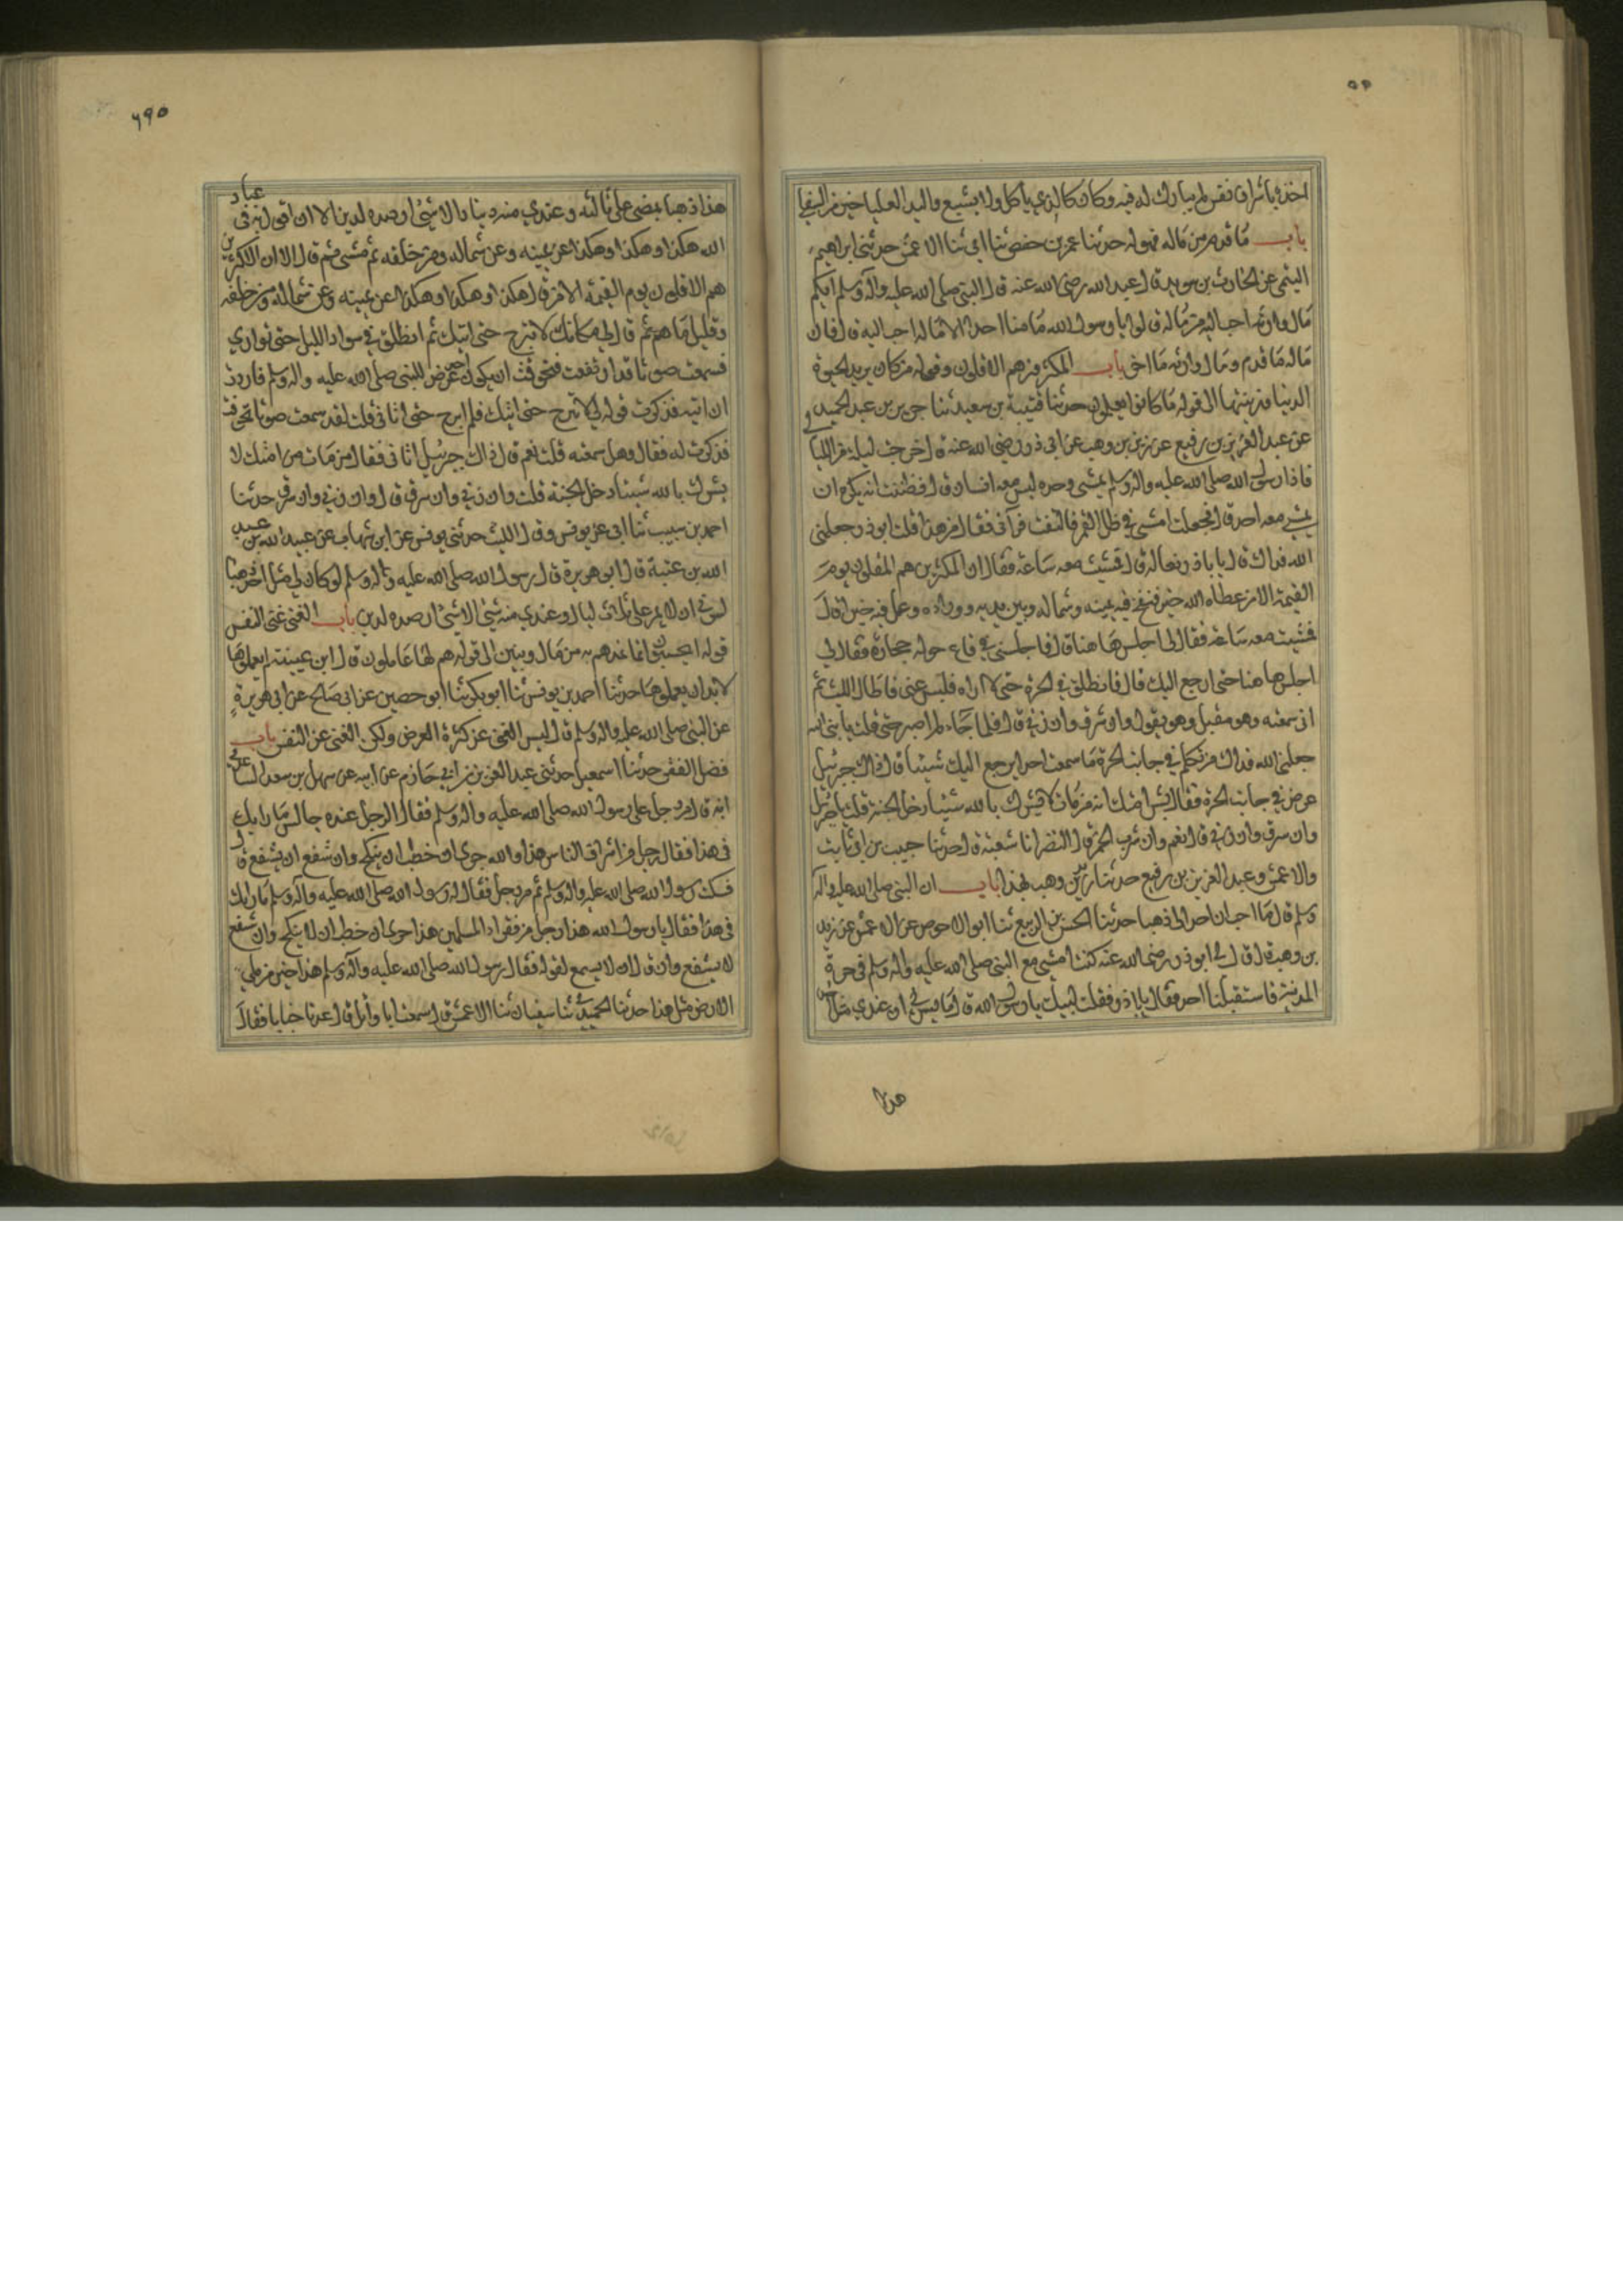 اخذه باشراف نفس لم يبارك له فيه وكان كالذي ياكل ولا يشبع واليد العليا خير من السفلى
باب ما قدم من ماله فهو له حدثنا عمر بن حفص ثنا ابي ثنا الاعمش حدثني ابراهيم
التيمي عن الحارث بن سويد قال عبد الله رضي الله عنه قال النبي صلى الله عليه وآله وسلم ايكم
مال وارثه احب اليه من ماله قالوا يا رسول الله ما منا احد الا ماله احب اليه قال فان
ماله ما قدم ومال وارثه ما اخر باب المكثرون هم الاقلون وقوله من كان يريد الحيوة
الدنيا وزينتها الى قوله ما كانوا يعملون حدثنا قتيبة بن سعيد ثنا جرير بن عبد الحميد
عن عبد العزيز بن رفيع عن زيد بن وهب عن ابي ذر رضي الله عنه قال خرجت ليلة من الليالي
فاذا رسول الله صلى الله عليه وآله وسلم يمشي وحده ليس معه انسان قال فظننت انه يكره ان
يمشي معه احد قال فجعلت امشي في ظل القمر فالتفت فرآني فقال من هذا قلت ابو ذر جعلني
الله فداك قال يا با ذر تعاله قال فمشيت معه ساعة فقال ان المكثرين هم المقلون يوم
القيمة الا من عطاه الله خيرا فنفخ فيه يمينه وشماله وبين يديه ووراءه وعمل فيه خيرا قال
فمشيت معه ساعة فقال لي اجلس هاهنا قال فاجلسني في قاع حوله حجارة فقال لي
اجلس هاهنا حتى ارجع اليك قال فانطلق في الحرة حتى لا اراه فلبث عني فاطال اللبث ثم
اني سمعته وهو مقبل وهو يقول وان سرق وان زنى قال فلما جاء لم اصبر حتى قلت يا نبي الله
جعلني الله فداك من تكلم في جانب الحرة ما سمعت احدا يرجع اليك شيئا قال ذاك جبرئيل
عرض في جانب الحرة فقال بشر امتك انه من مات لا يشرك بالله شيئا دخل الجنة قلت يا جبرئيل
وان سرق وان زنى قال نعم وان شرب الخمر قال النضر انا شعبة قال حدثنا حبيب بن ابي ثابت
والاعمش وعبد العزيز بن رفيع حدثنا زيد بن وهب بهذا باب ان النبي صلى الله عليه وآله
وسلم قال ما احب ان احدا لي ذهبا حدثنا الحسن بن الربيع ثنا ابو الاحوص عن الاعمش عن زيد
بن وهب قال قال لي ابو ذر رضي الله عنه كنت امشي مع النبي صلى الله عليه وآله وسلم في حرة
المدينة فاستقبلنا احد فقال يا با ذر فقلت لبيك يا رسول الله قال ما يسرني ان عندي مثل احد
هذا
٦٩٥
هذا ذهبا يمضي علي ثالثة وعندي منه دينار الا شيئا ارصده لدين الا ان اقول به في عباد
الله هكذا وهكذا وهكذا عن يمينه وعن شماله ومن خلفه ثم مشى ثم قال الا ان الاكثرين
هم الاقلون يوم القيمة الا من قال هكذا وهكذا وهكذا عن يمينه وعن شماله ومن خلفه
وقليل ما هم ثم قال لي مكانك لا تبرح حتى اتيك ثم انطلق في سواد الليل حتى توارى
فسمعت صوتا قد ارتفعت فتخوفت ان يكون احد عرض للنبي صلى الله عليه وآله وسلم فاردت
ان اتيه فذكرت قوله لي لا تبرح حتى اتيك فلم ابرح حتى اتاني قلت لقد سمعت صوتا تخوفت
فذكرت له فقال وهل سمعته قلت نعم قال ذاك جبرئيل اتاني فقال من مات من امتك لا
يشرك بالله شيئا دخل الجنة قلت وان زنى وان سرق قال وان زنى وان سرق حدثنا
احمد بن شبيب ثنا ابي عن يونس وقال الليث حدثني يونس عن ابن شهاب عن عبيد الله بن عبد
الله بن عتبة قال ابو هريرة قال رسول الله صلى الله عليه وآله وسلم لو كان لي مثل احد ذهبا
لسرني ان لا يمر علي ثلاث ليال وعندي منه شيئ الا شيئ ارصده لدين باب الغنى غنى النفس
قوله ايحسبون انما نمدهم به من مال وبنين الى قوله هم لها عاملون قال ابن عيينة لم يعملوها
لا بد ان يعملوها حدثنا احمد بن يونس ثنا ابو بكر ثنا ابو حصين عن ابي صالح عن ابي هريرة
عن النبي صلى الله عليه وآله وسلم قال ليس الغنى عن كثرة العرض ولكن الغنى غنى النفس باب
فضل الفقر حدثنا اسمعيل حدثني عبد العزيز بن ابي حازم عن ابيه عن سهل بن سعد الساعدي
انه قال مر رجل على رسول الله صلى الله عليه وآله وسلم فقال لرجل عنده جالس ما رايك
في هذا فقال رجل من اشراف الناس هذا والله حري ان خطب ان ينكح وان شفع ان يشفع قال
فسكت رسول الله صلى الله عليه وآله وسلم ثم مر رجل فقال له رسول الله صلى الله عليه وآله وسلم ما رايك
في هذا فقال يا رسول الله هذا رجل من فقراء المسلمين هذا حري ان خطب ان لا ينكح وان شفع
لا يشفع وان قال ان لا يسمع لقوله فقال رسول الله صلى الله عليه وآله وسلم هذا خير من ملئ
الارض مثل هذا حدثنا الحميدي ثنا سفيان ثنا الاعمش قال سمعت ابا وائل قال عدنا خبابا فقال